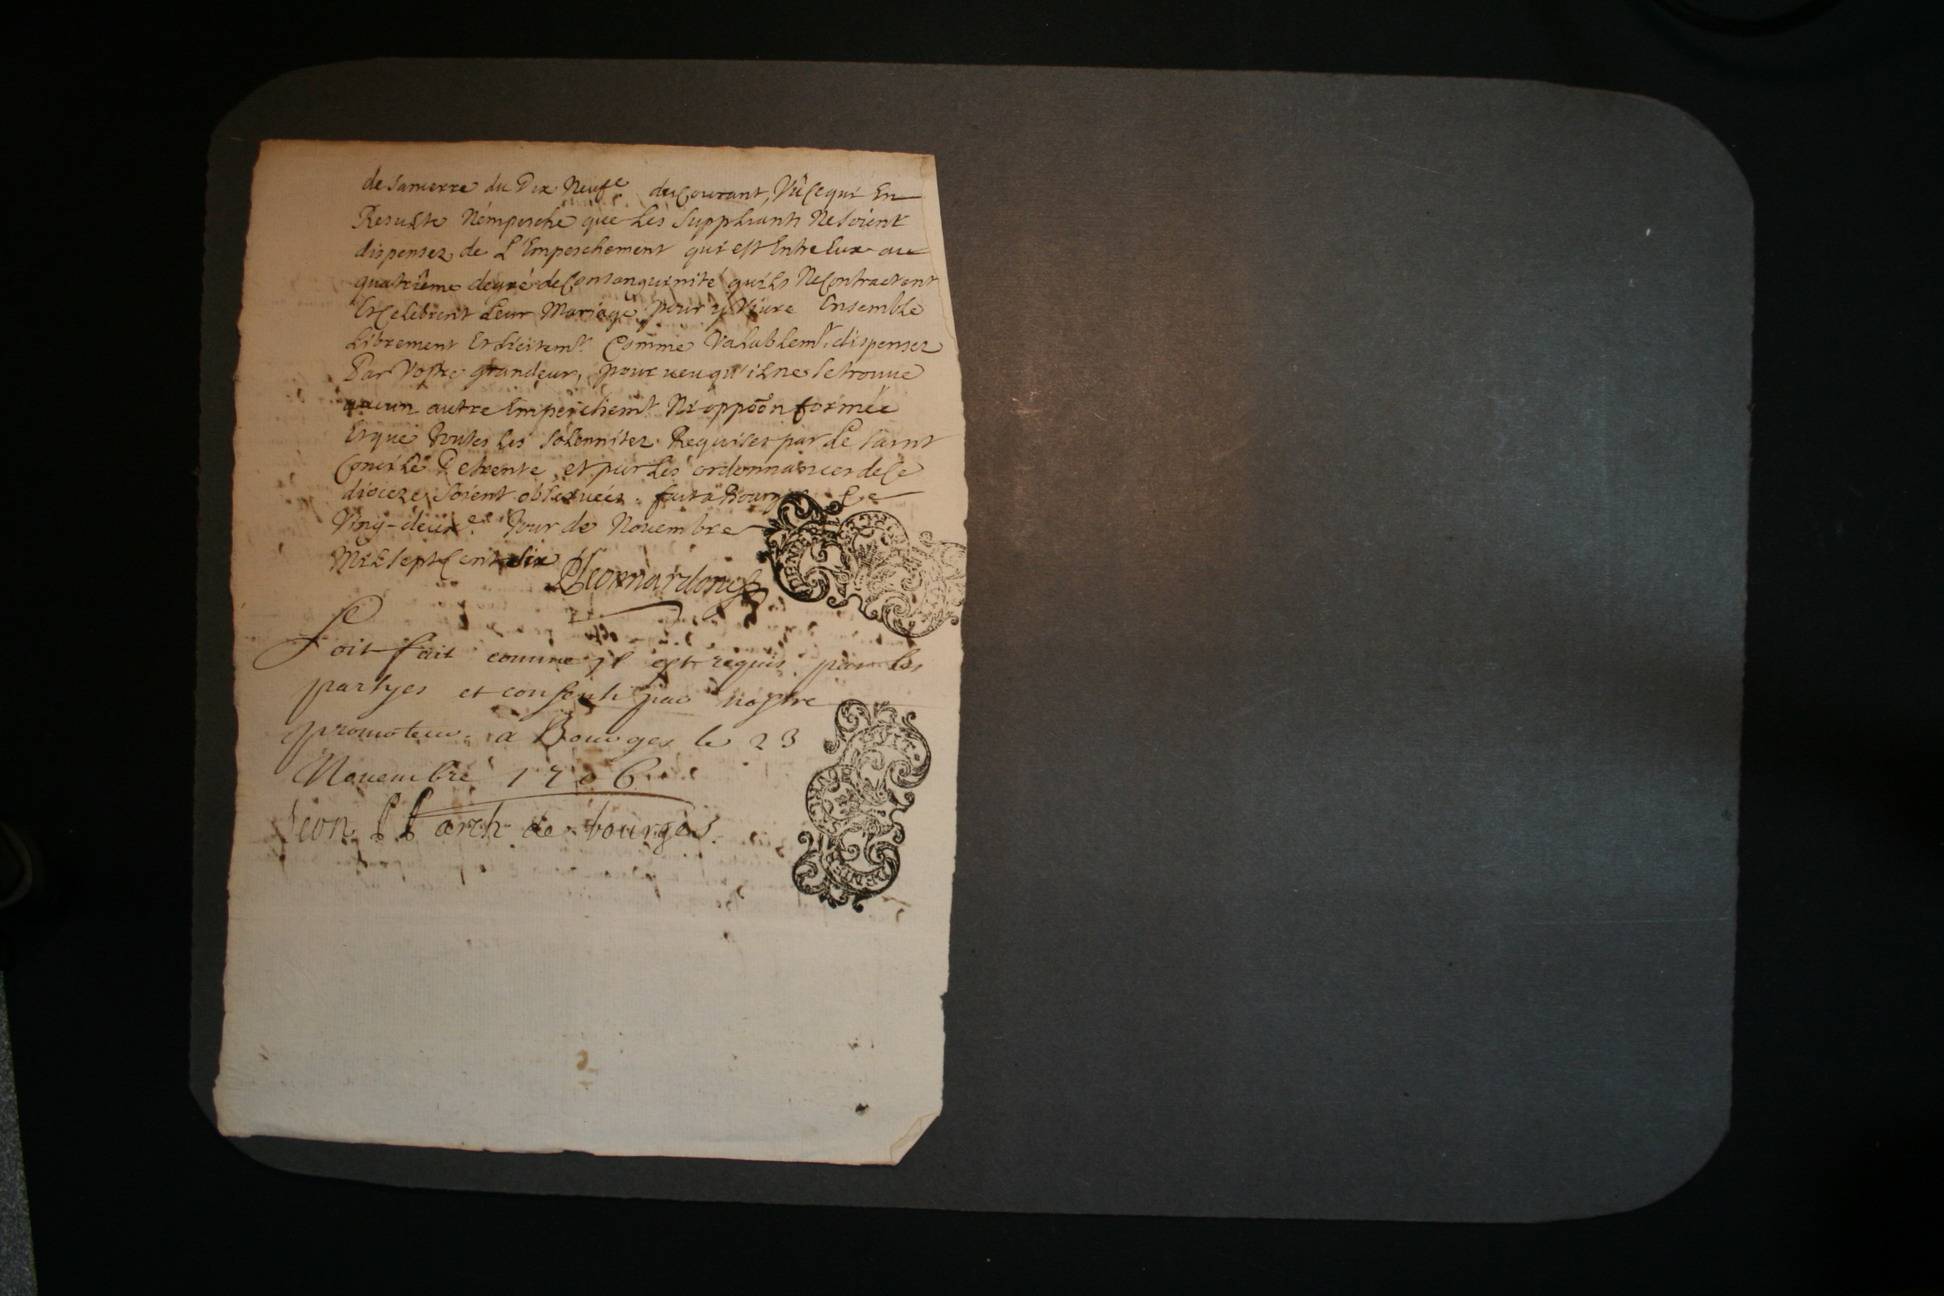 de Sancerre du Dix Neufe du Courant, Vu Ce qui En
Resulte N'empesche que Les Suppliants Ne Soient
dispensez de L'Empeschement qui est Entre Eux au
quatrieme degré de Consanguinité quils Ne Contractent
Et Celebrent Leur Mariage pour y Vivre Ensemble
Librement Et Licitemt. Comme Valablemt. dispensez
Par Vostre grandeur, pour ueu qu'il ne Se trouue
aucun autre Empeschemt. Ni oppoōn formée
Et que Toutes Les Solennitez Requises par Le Saint
Concile De trente et par Les ordonnances de Ce
dioceze Soient obseruées. fait a Bourges Le
Vingt-deuxe. Jour de Nouembre
Mil Sept Cent Six
Soit fait comme jl est requis par les
partyes et consenti par nostre
promoteur. a Bourges le 23
Nouembre 1706
leon arch de bourges.